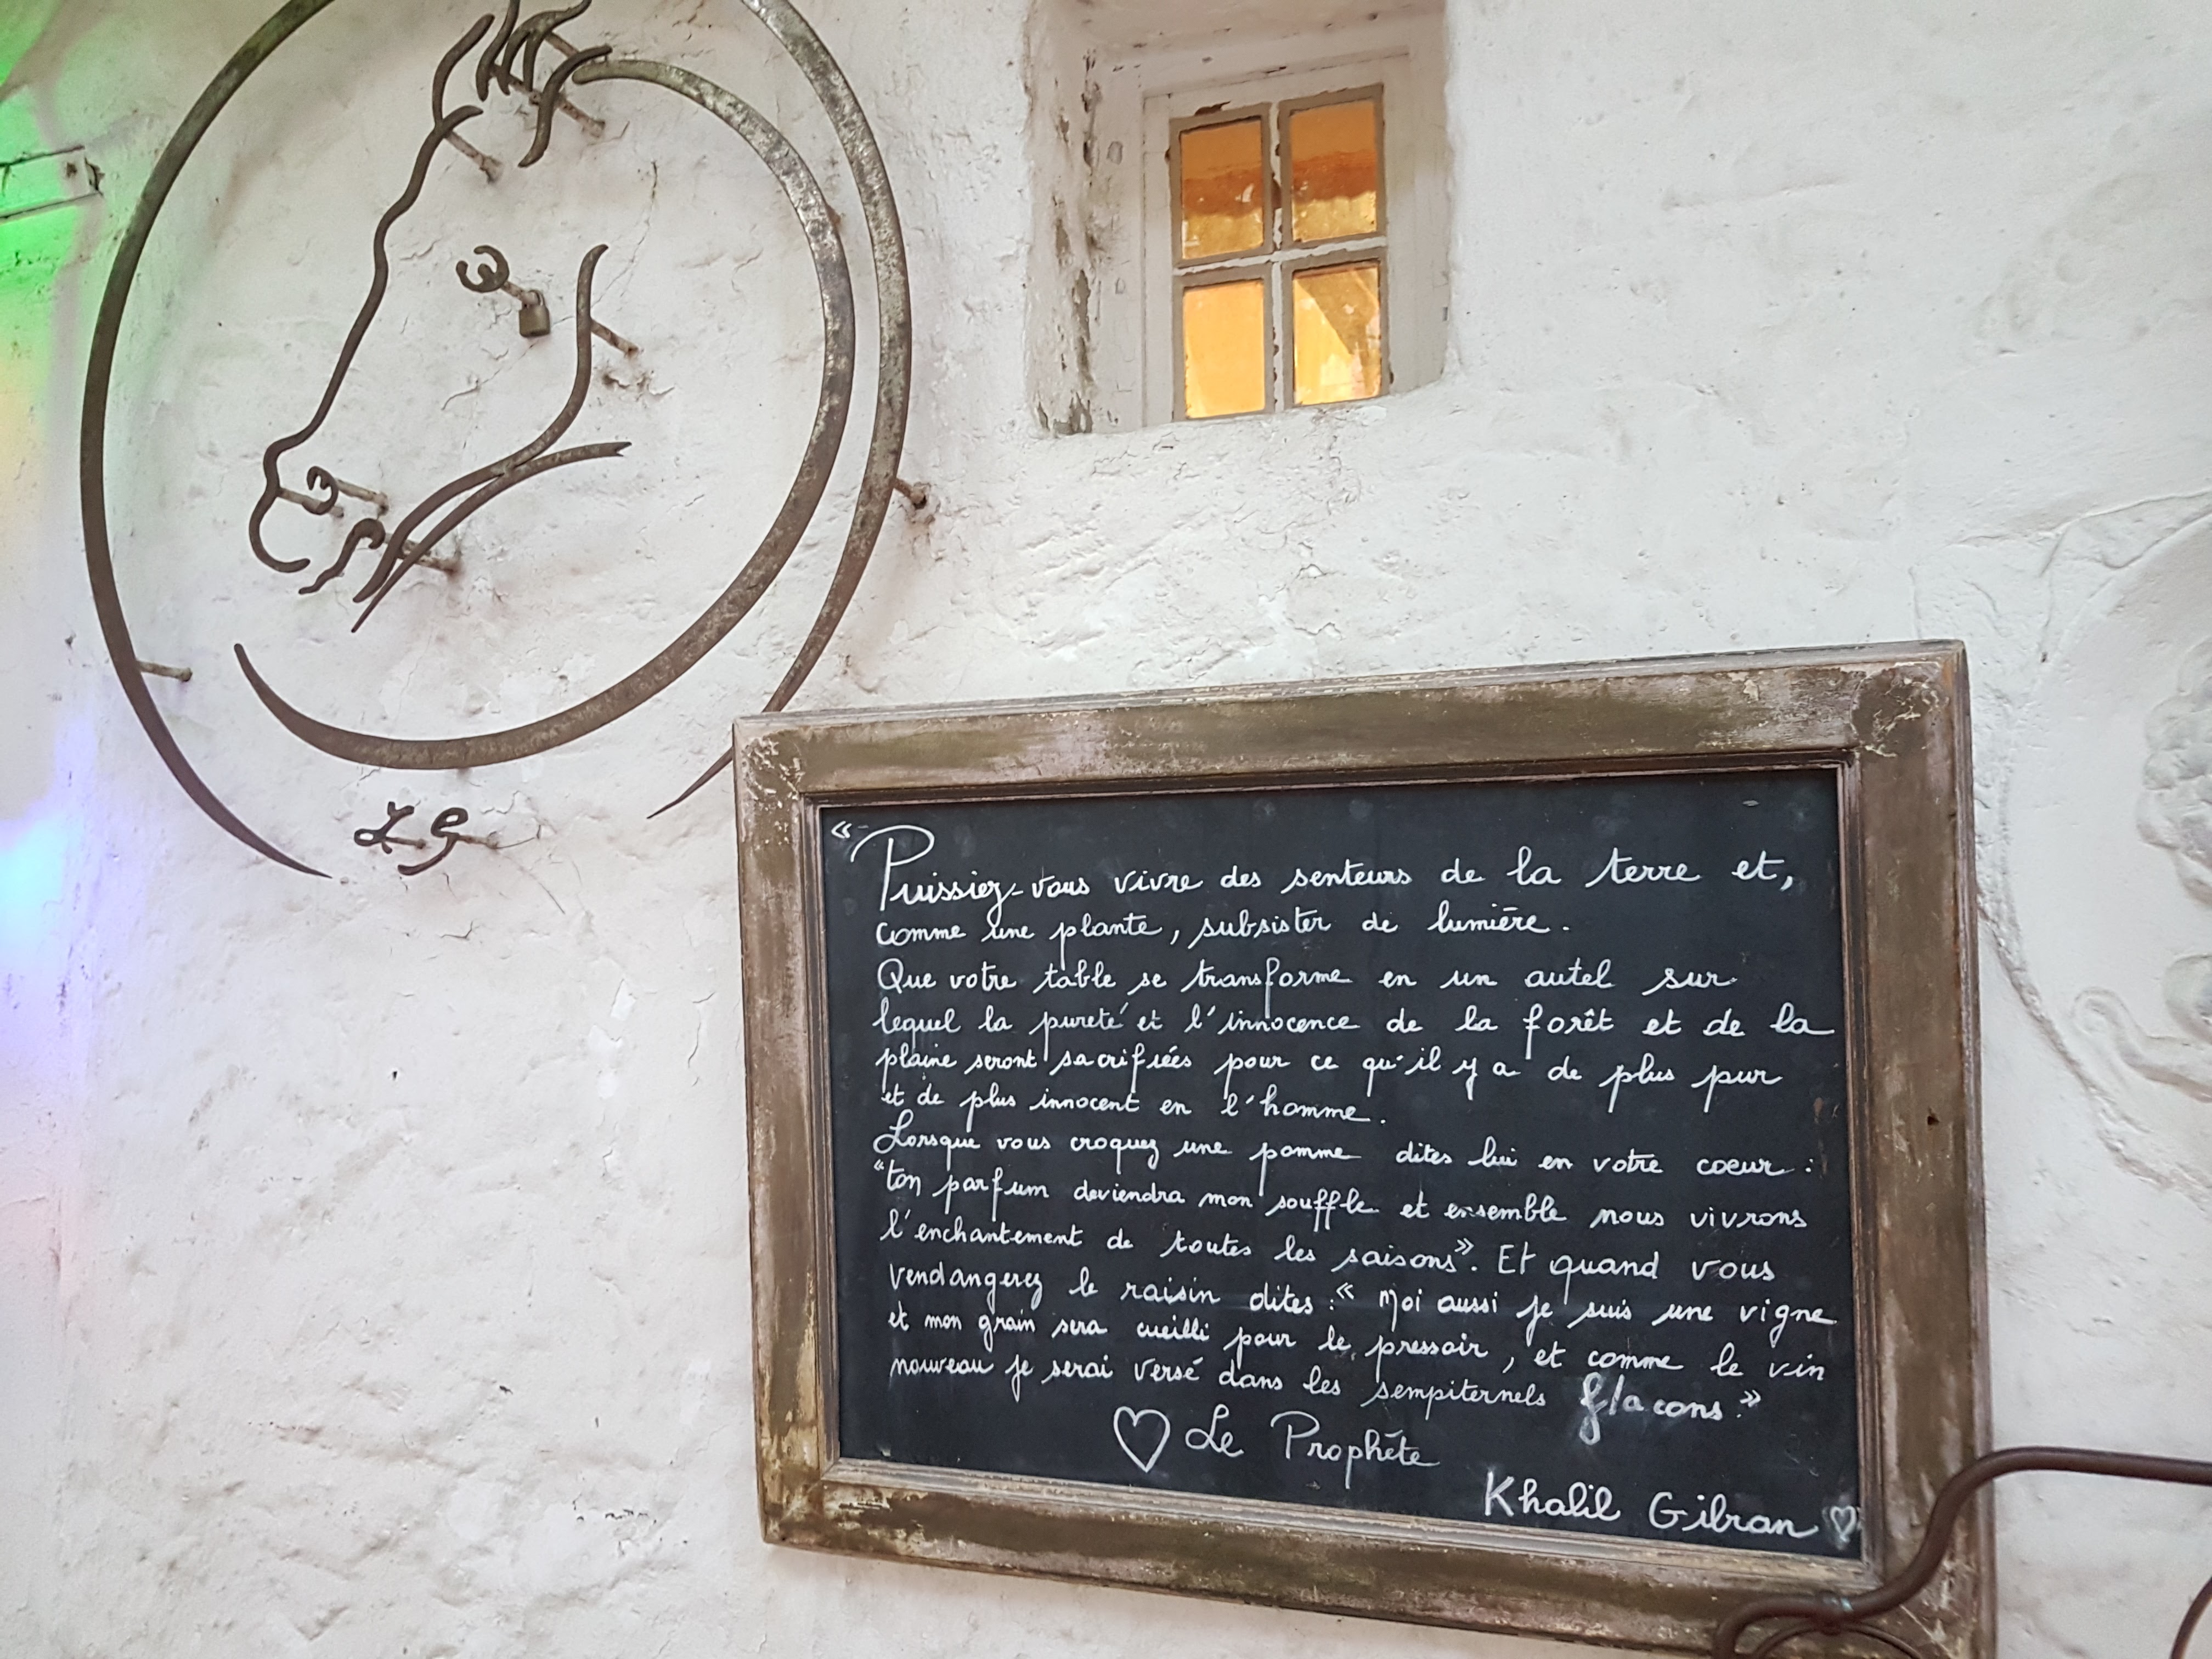 LG
« Puissiez-vous vivre des senteurs de la terre et,
comme une plante, subsister de lumière.
Que votre table se transforme en un autel sur
lequel la pureté et l'innocence de la forêt et de la
plaine seront sacrifiées pour ce qu'il y a de plus pur
et de plus innocent en l'homme.
Lorsque vous croquez une pomme dites lui en votre coeur :
"ton parfum deviendra mon souffle et ensemble nous vivrons
l'enchantement de toutes les saisons ». Et quand vous
vendangerez le raisin dites : « Moi aussi je suis une vigne
et mon grain sera cueilli pour le pressoir, et comme le vin
nouveau je serai versé dans les sempiternels flacons. »
♡ Le Prophète
Khalil Gibran ♡